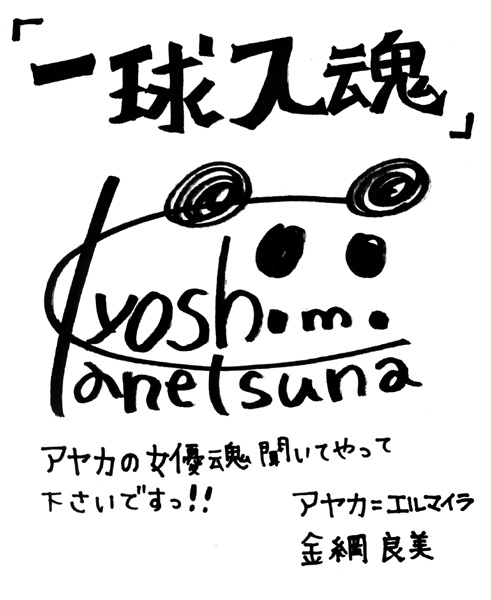 「一球入魂」
yoshimi
Kanetsuna
アヤカの女優魂聞いてやって
下さいですっ!!
アヤカ=エルマイラ
金綱良美